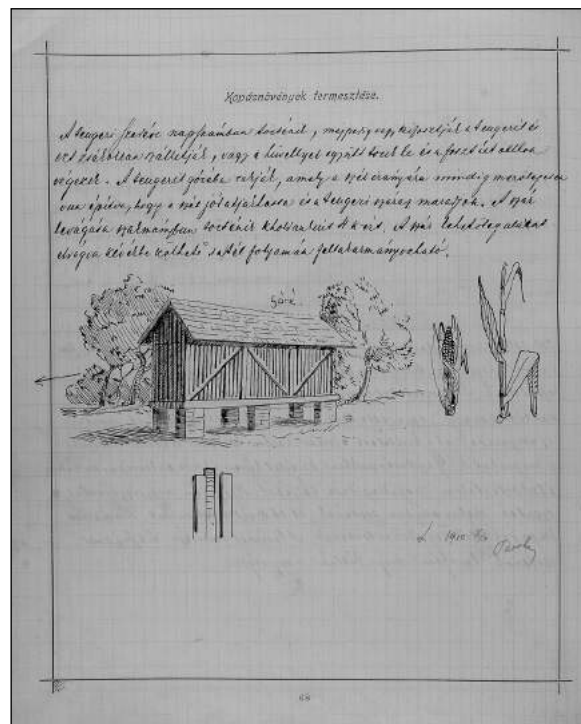 Kapásnövények termesztése.
A tengeri törése napszámban történik, még pedig vagy kifosztják a tengerit és
ezt szállítják, vagy a hüvellyel együtt törik le és a fosztást otthon
végezik. A tengerit góréba rakják, amely a szél irányára mindig merőlegesen
van építve, hogy a szél jól átjárhassa és a tengeri szárag maradjon. A szár
levágása szakmányban történik kholdanként 4 k-ért. A szár
kévébe köthető s a tél folyamán feltakarmányozható.
Góré.
1910
68